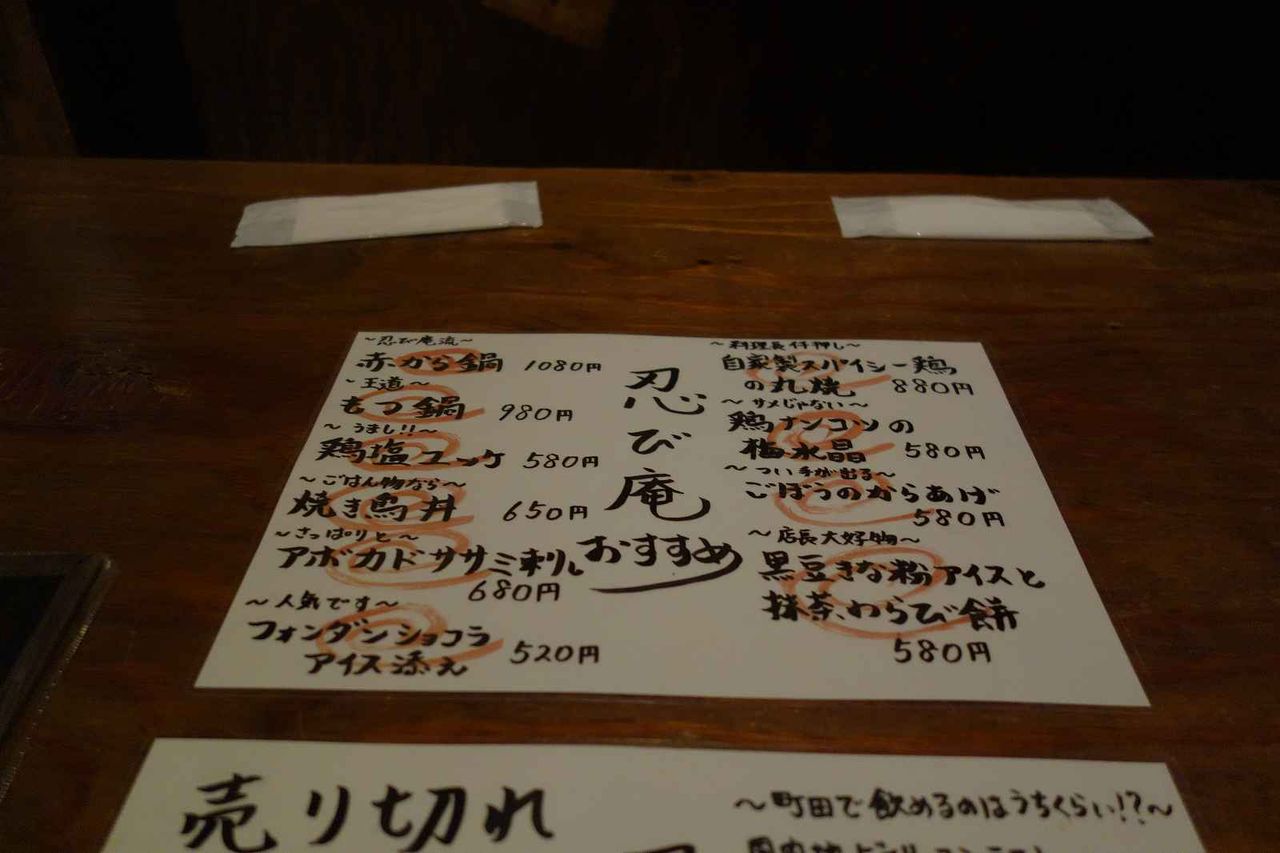 ~忍び庵流~
赤から鍋 1080円
~王道~
もつ鍋 980円
~うまし!!~
鶏塩ユッケ 580円
~ごはん物なら~
焼き鳥丼 650円
~さっぱりと~
アボカドササミ刺し
680円
~人気です~
フォンダンショコラ
アイス添え 520円
忍び庵
おすすめ
~料理長イチ押し~
自家製スパイシー鶏
の丸焼 880円
~サメじゃない~
鶏ナンコツの
梅水晶 580円
~つい手が出る~
ごぼうのからあげ
580円
~店長大好物~
黒豆きな粉アイスと
抹茶わらび餅
580円
売り切れ
~町田で飲めるのはうちくらい!?~